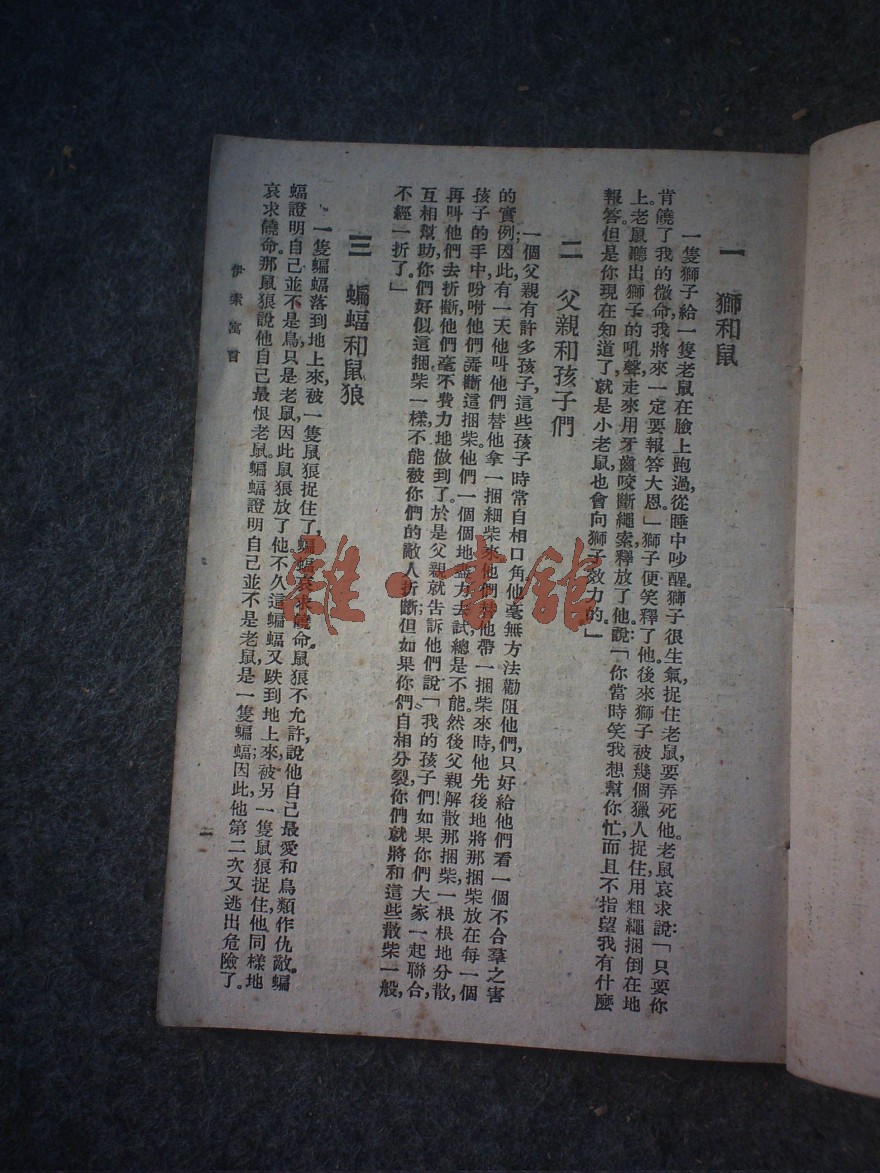 一 獅和鼠
一隻獅子給一隻老鼠在臉上跑過,從睡中吵醒。獅子很生氣,捉住老鼠,要弄死他。老鼠哀求說:「只要你
肯饒了我的微命,我將來一定要報答大恩。」獅子便笑釋了他。後來獅子被幾個獵人捉住,用粗繩捆倒在地
上。老鼠聽出獅子的吼聲,走來用牙齒咬斷繩索,釋放了他。說:「你當時笑我想幫你忙,而且不指望我有什麼
報答,但是你現在知道了,就是小老鼠,也會向獅子效力的。」
二 父親和孩子們
一個父親有許多孩子,這些孩子時常自相口角,他毫無方法勸阻他們,只好給他們看一個不合羣之害
的實例;因此,有一天他叫他們替他拿一捆細柴來。他們替他帶一捆柴來時,他先後地將那捆柴放在每一個
孩子的手中,吩咐他們弄斷這捆柴。他們一個個地盡力去試,總是不能。然後父親解散那捆柴,一根根地分散,
再叫他們去折斷,他們毫不費力地做到了。於是父親就告訴他們說:「我的孩子們!如果你們大家一起聯合,
互相幫助,你們好似這捆柴一樣,不能被你們的敵人折斷;但如果你們自相分裂,你們就將和這些散柴一般,
不經一折了。」
三 蝙蝠和鼠狼
一隻蝙蝠落到地上來,被一隻鼠狼捉住了,蝙蝠哀求饒命。鼠狼不允許,說他自己最愛和鳥類作仇敵。蝙
蝠證明自己並不是鳥,只是老鼠,因此鼠狼放了他。不久這蝙蝠又跌到地上來,被另一隻鼠狼捉住,他同樣地
哀求饒命。那鼠狼說他自己最恨老鼠。蝙蝠證明自己並不是老鼠,是一隻蝙蝠;因此,他第二次又逃出危險了。
伊索寓言
一
雜·書館